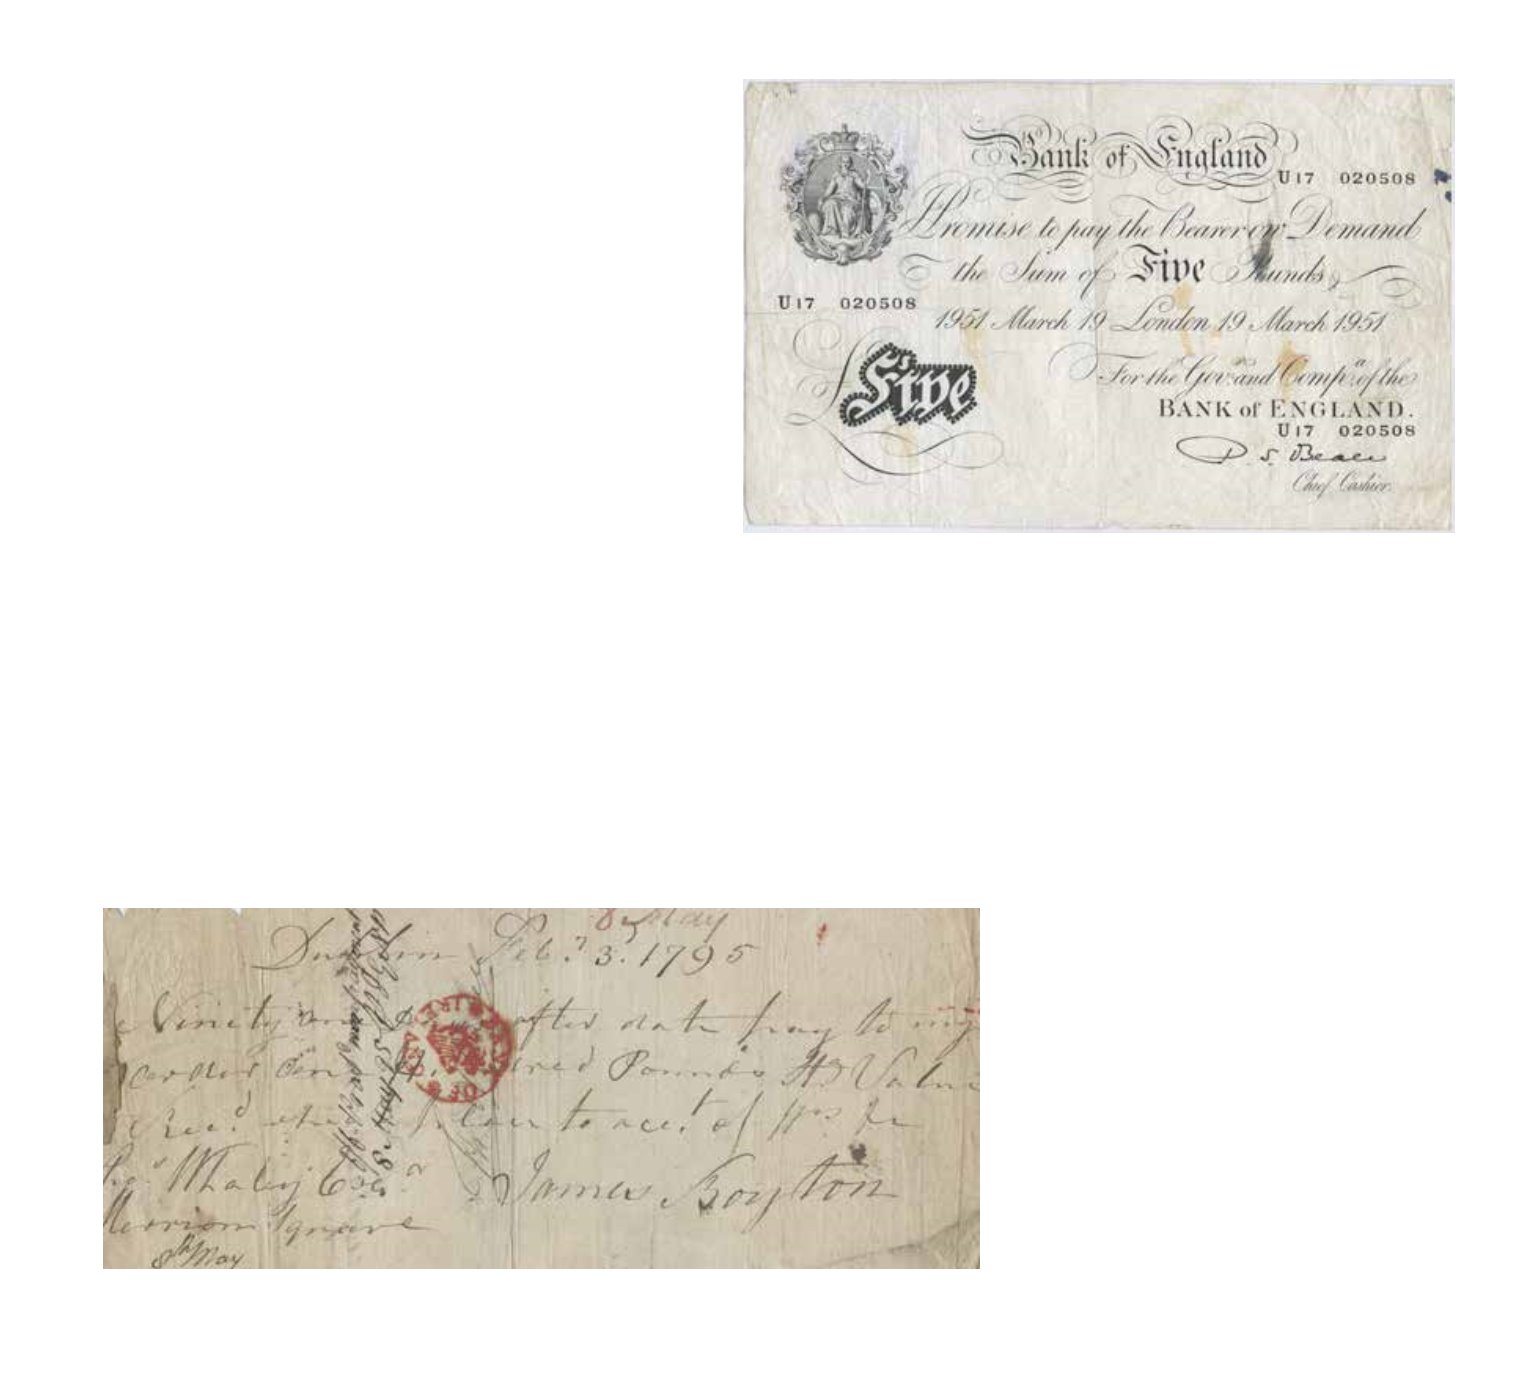 Bank of England
U17 020508
I Promise to pay the Bearer on Demand
the Sum of Five Pounds
U17 020508
1951 March 19 London 19 March 1951
For the Govr. and Compa. of the
BANK of ENGLAND.
£Five
U17 020508
P. S. Beale
Chief Cashier.
8 May
Dublin Feb.y 3. 1795
Ninety one Days after date pay to my
order One Hundred Pounds Str Value
Rec.d place to acc.t of
BANK OF IRELAND
Whaley Esq.r James Boyton
Merrion Square
8th May